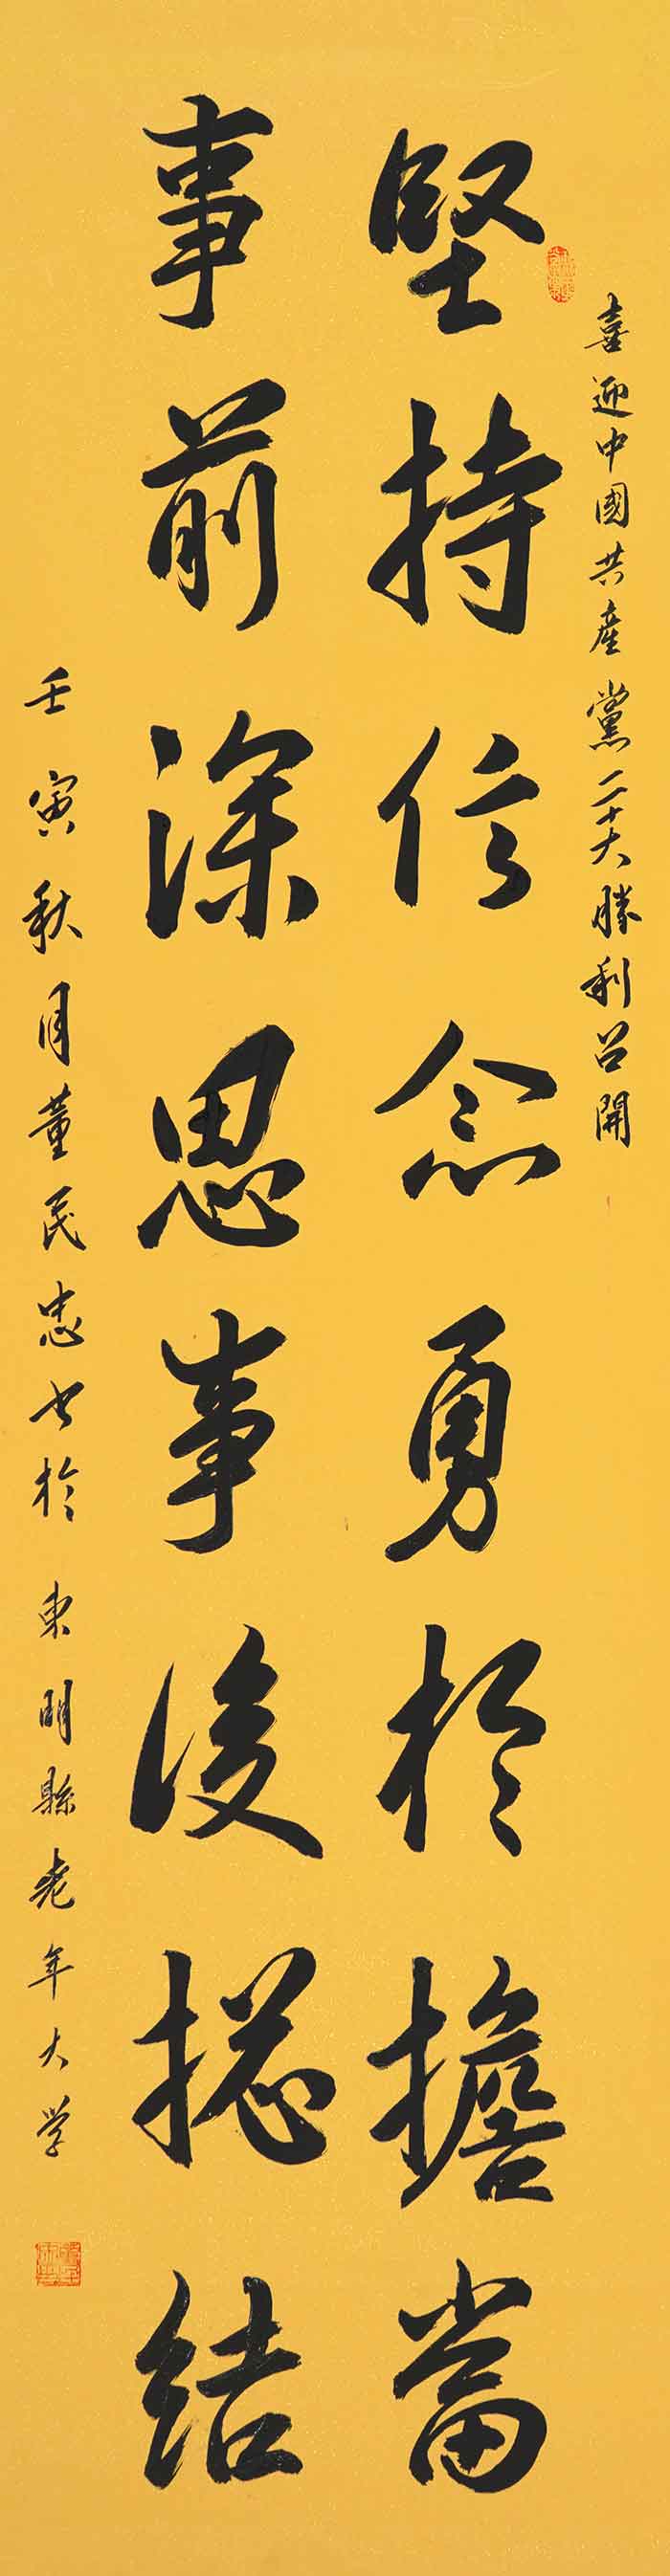 喜迎中國共產黨二十大勝利召開
堅持信念勇於擔當
事前深思事後總結
壬寅秋月董民忠书於東明縣老年大学